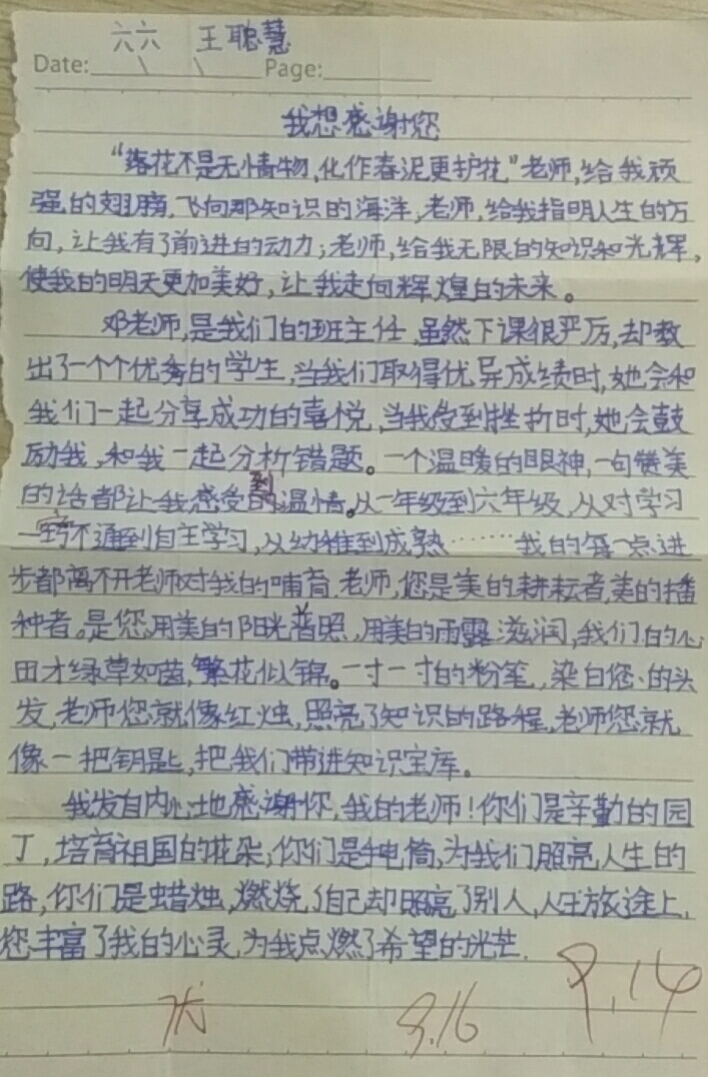 六六 王聪慧
Date: \ \ Page:
我想感谢您
“落花不是无情物,化作春泥更护花”老师,给我顽
强的翅膀,飞向那知识的海洋,老师,给我指明人生的方
向,让我有了前进的动力;老师,给我无限的知识和光辉,
使我的明天更加美好,让我走向辉煌的未来。
邓老师,是我们的班主任,虽然下课很严厉,却教
出了一个个优秀的学生,当我们取得优异成绩时,她会和
我们一起分享成功的喜悦,当我受到挫折时,她会鼓
励我,和我一起分析错题。一个温暖的眼神,一句赞美
的话都让我感受到温情。从一年级到六年级,从对学习
一窍不通到自主学习,从幼稚到成熟……我的每一点进
步都离不开老师对我的哺育,老师,您是美的耕耘者,美的播
种者。是您用美的阳光普照,用美的雨露滋润,我们的心
田才绿草如茵,繁花似锦。一寸一寸的粉笔,染白您的头
发,老师您就像红烛,照亮了知识的路程,老师您就
像一把钥匙,把我们带进知识宝库。
我发自内心地感谢你,我的老师!你们是辛勤的园
丁,培育祖国的花朵,你们是电筒,为我们照亮人生的
路,你们是蜡烛,燃烧了自己却照亮了别人,人生旅途上,
您丰富了我的心灵,为我点燃了希望的光芒.
优 9.16 9.14